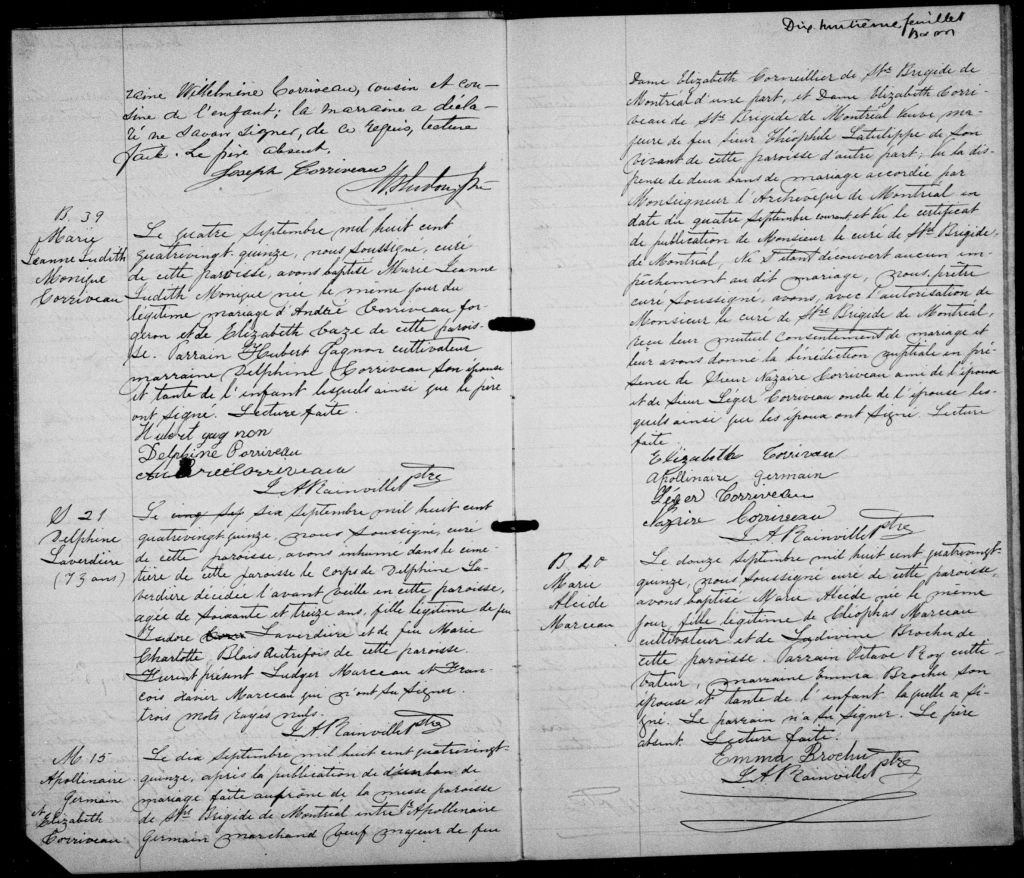 raine Willelmine Corriveau, cousin et cou-
sine de l'enfant; la marraine a décla-
ré ne savoir signer, de ce requis, lecture
faite. Le père absent.
Joseph Corriveau
B. 39
Marie
Jeanne Judith
Monique
Corriveau
Le quatre Septembre mil huit cent
quatrevingt-quinze, nous soussigné, curé
de cette paroisse, avons baptisé Marie Jeanne
Judith Monique née le même jour du
légitime mariage d'André Corriveau for-
geron et de Elizabeth Caze de cette parois-
se. Parrain Hubert Gagnon cultivateur
marraine Delphine Corriveau son épouse
et tante de l'enfant lesquels ainsi que le père
ont signé. Lecture faite.
Hubert gagnon
Delphine Corriveau
André Corriveau
J. A. Rainville Ptre
S 21
Delphine
Laverdière
(73 ans)
Le cinq Sep six septembre mil huit cent
quatrevingt quinze, nous soussigné, curé
de cette paroisse, avons inhumé dans le cime-
tière de cette paroisse le corps de Delphine La-
verdière décédée l'avant veille en cette paroisse,
agée de soixante et treize ans, fille légitime de feu
Isidore Laverdière et de feu Marie
Charlotte Blais autrefois de cette paroisse.
Furent présent Ludger Marceau et Fran-
cois Xavier Marceau qui n'ont su signer.
trois mots rayés nuls.
J. A. Rainville Ptre
M 15
Apollinaire
Germain
et
Elizabeth
Corriveau
Le dix septembre mil huit cent quatrevingt-
quinze, après la publication de d'un ban de
mariage faite au prône de la messe paroisse
de Ste Brigide de Montréal entre Sr Apollinaire
Germain marchand veuf majeur de feu
Dix huitième feuillet
Dame Elizabeth Corneillier de Ste Brigide de
Montréal d'une part, et Dame Elizabeth Corri-
veau de Ste Brigide de Montréal veuve ma-
jeure de feu sieur Théophile Latulippe de son
vivant de cette paroisse d'autre part; Vu la dis-
pense de deux bans de mariage accordée par
Monseigneur l'Archevêque de Montréal en
date du quatre Septembre courant et Vu le certificat
de publication de Monsieur le curé de Ste Brigide,
de Montréal, Ne s'étant découvert aucun em-
pêchement au dit mariage, nous, prêtre
curé soussigné, avons, avec l'autorisation de
Monsieur le curé de Ste Brigide de Montréal,
reçu leur mutuel consentement de mariage et
leur avons donné la bénédiction nuptiale en pré-
sence de Sieur Nazaire Corriveau ami de l'époux
et de Sieur Léger Corriveau oncle de l'épouse les-
quels ainsi que les époux ont signé. Lecture
faite
Elizabeth Corriveau
Apollinaire Germain
Léger Corriveau
Nazaire Corriveau
J. A. Rainville Ptre
B 40
Marie
Alcide
Marceau
Le douze septembre mil huit cent quatrevingt-
quinze, nous soussigné curé de cette paroisse,
avons baptisé Marie Alcide née le même
jour, fille légitime de Cléophas Marceau
cultivateur et de Ludivine Brochu de
cette paroisse. Parrain Octave Roy culti-
vateur, marraine Emma Brochu son
épouse et tante de l'enfant laquelle a si-
gné. Le parrain n'a su signer. Le père
absent. Lecture faite.
Emma Brochu
J. A. Rainville Ptre